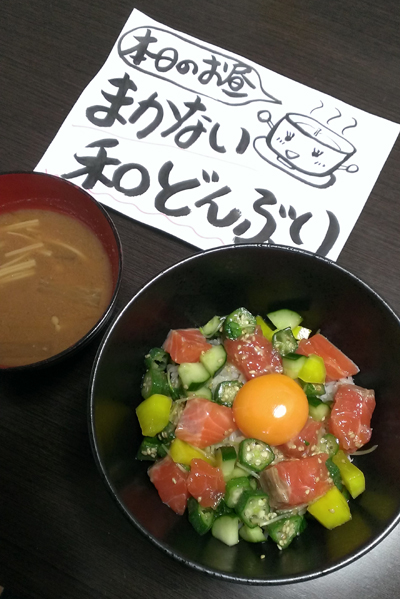 本日のお昼
まかない
和どんぶり